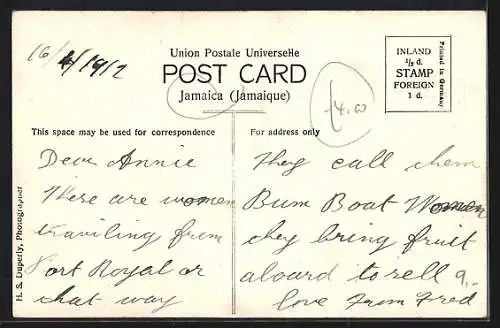 16/4/1912
Union Postale Universelle
POST CARD
Jamaica (Jamaique)
£4.00
INLAND
½ d.
STAMP
FOREIGN
1 d.
Printed in Germany
This space may be used for correspondence
For address only
Dear Annie
These are women
traviling from
Port Royal or
that way
They call them
Bum Boat Women
they bring fruit
aboard to sell
love from Fred
H. S. Duperly, Photographer